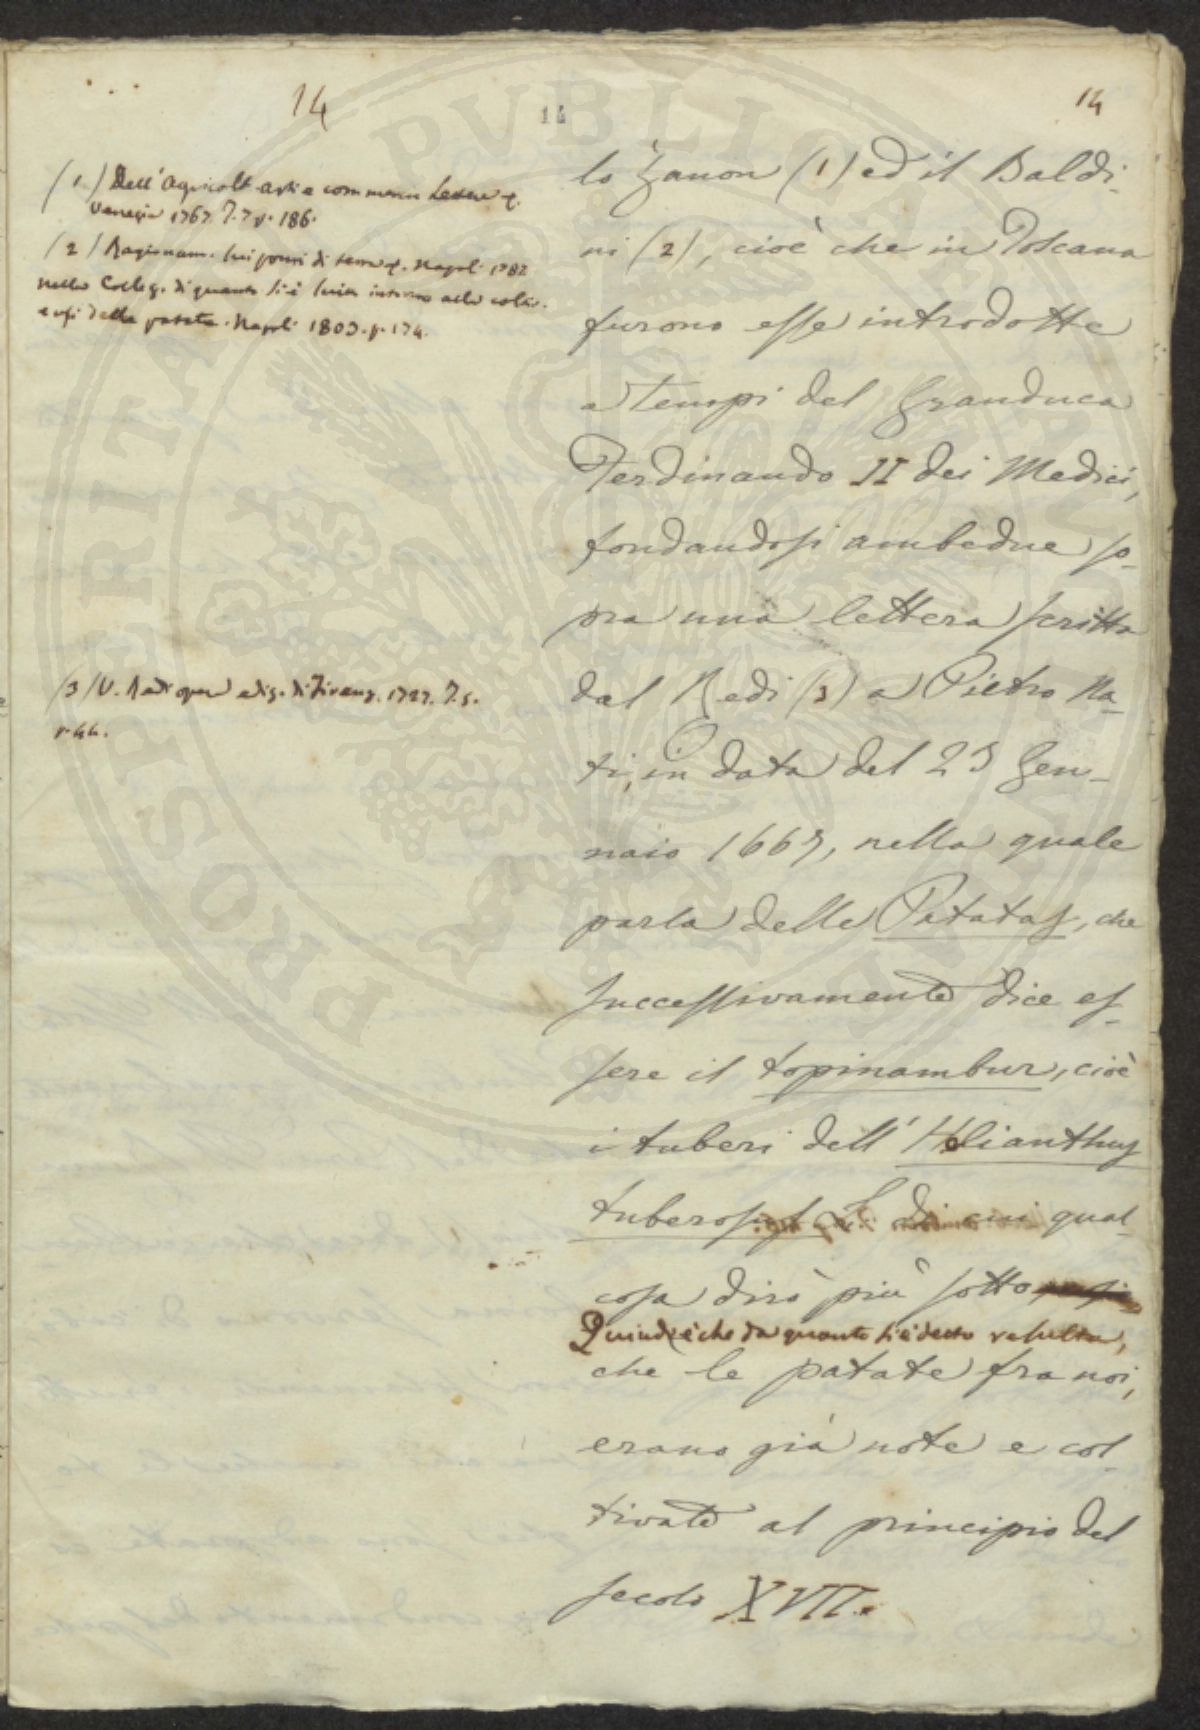 14
14
14
(1) Dell'Agricolt. arti e commercio Lettere &.
Venezia 1767. T. 7 p. 186.
(2) Ragionam. sui pomi di terra &. Napoli 1783
nella Colleg. di quanto si è scritto intorno alla coltiv.
e usi della patata. Napoli 1803. p. 174.
(3) V. Redi opere ediz. di Firenz. 1727. T. 5.
p. 44.
lo Zanon (1) ed il Baldi-
ni (2), cioè che in Toscana
furono esse introdotte
a tempi del Granduca
Ferdinando II dei Medici,
fondandosi ambedue so-
pra una lettera scritta
dal Redi (3) a Pietro Na-
ti, in data del 23 Gen-
naio 1667, nella quale
parla delle Patatas, che
successivamente dice es-
sere il topinambur, cioè
i tuberi dell'Helianthus
tuberosus L. di cui qual-
cosa dirò più sotto
Quindi è che da quanto si è detto resulta,
che le patate fra noi,
erano già note e col-
tivate al principio del
secolo XVII.
PVBLICA
PROSPERITAS